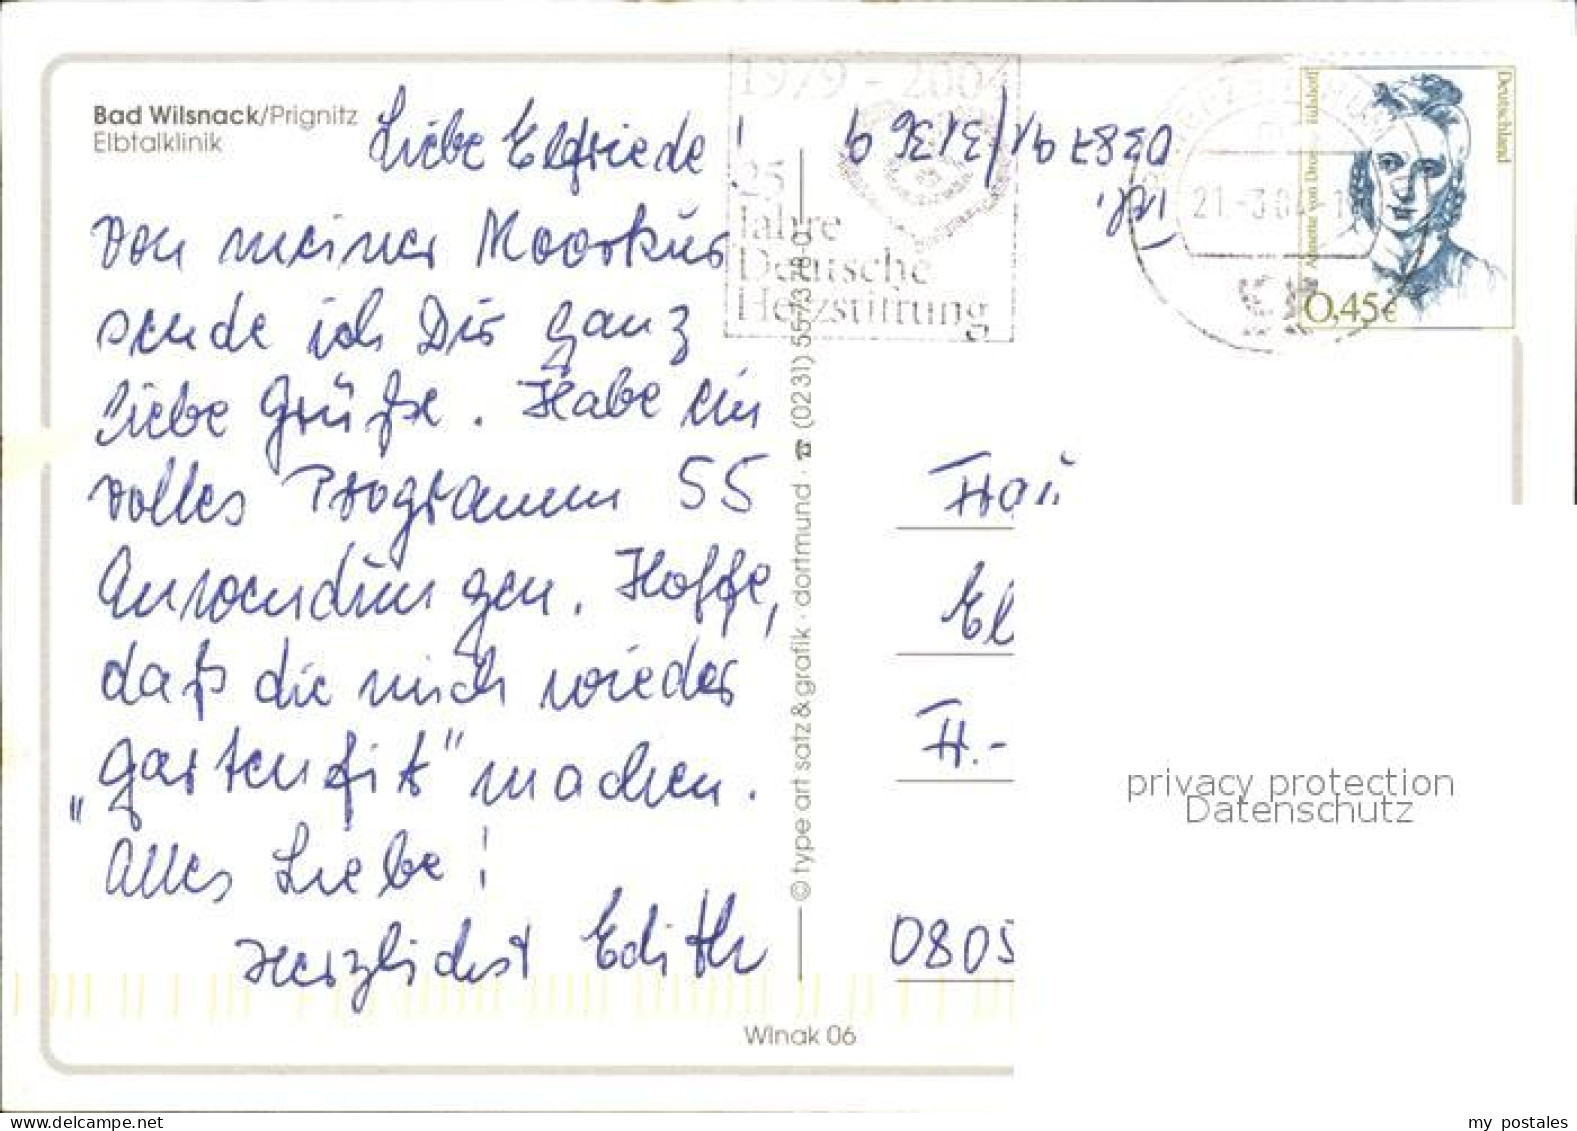 Bad Wilsnack/Prignitz
Elbtalklinik
Liebe Elfriede!
Von meiner Moorkur
sende ich Dir ganz
liebe Grüße. Habe ein
volles Programm 55
Anwendungen. Hoffe,
daß die mich wieder
„gartenfit" machen.
Alles Liebe!
Herzlichst Edith
© type art satz & grafik · dortmund · ☎ (0231) 557378-0
Winak 06
1979 - 2004
25
Jahre
Deutsche
Herzstiftung
Tel.
038791/31369
21.-3.04
Deutschland
Annette von Droste-Hülshoff
0,45€
Frau
El
H.-
0805
privacy protection
Datenschutz
my postales